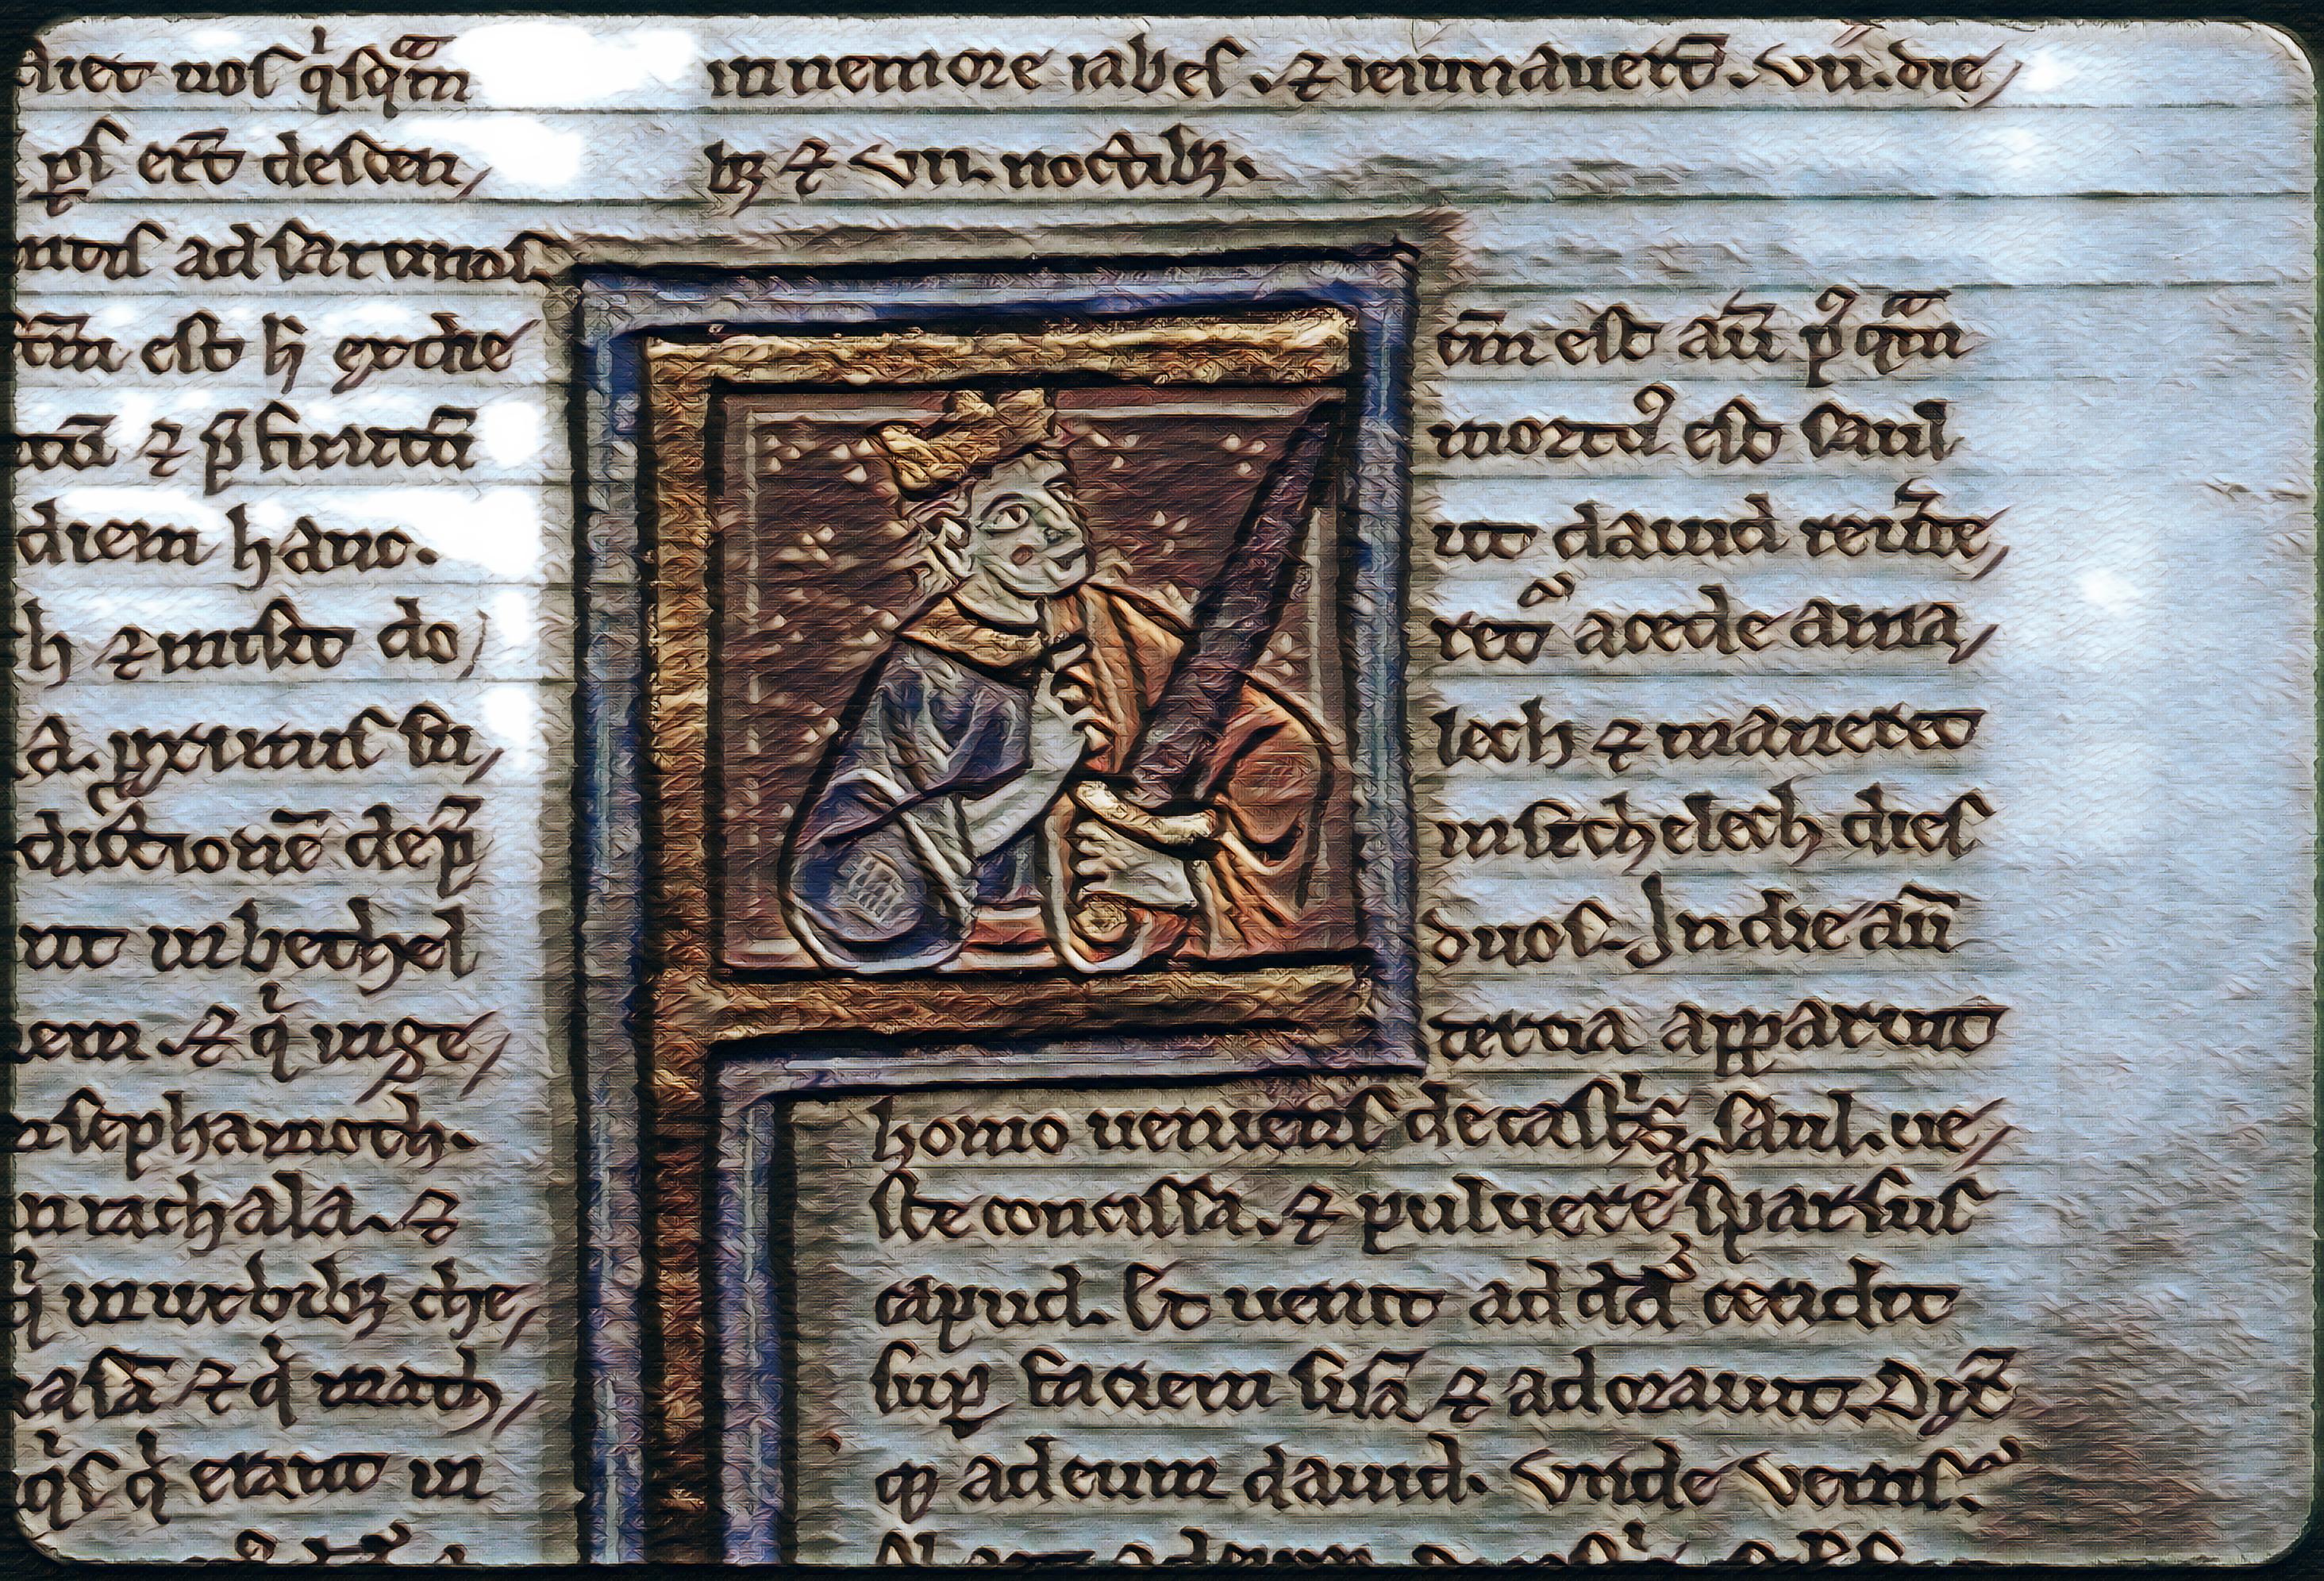 diet uos qͥsqᵃm
ꝑs er̄t descen
ntis ad sarcinas
ctm̄ est h̄ ex die
tutū ⁊ p̄finitū
diem hanc.
h ⁊ misit do
a. ꝓximis su
dictionē dep̄
nt in bethel
em. ⁊ qͥ in ge
n sephamoth.
n rachala. ⁊
qͥ in urbibꝫ che
rasā ⁊ qͥ math
qͥs qͥ erant in
in nemore iabes. ⁊ ieiunauer̄t. vii. die
bꝫ ⁊ vii. noctibꝫ.
F
ctm̄ est aū pꝰqᵃm
mortuꝰ est saul
ut dauid reu̅te
ret᷒ a cede ama
lech ⁊ maneret
in sechelech dies
duos. In die aū
tertia apparuit
homo ueniens de castͥs saul. ue
ste concissa. ⁊ puluere asparsus
capud. Et uenit ad dd̄ cecidit
suꝑ faciem suā ⁊ adorauit. Dix̄
qꝫ ad eum dauid. Vnde venis.